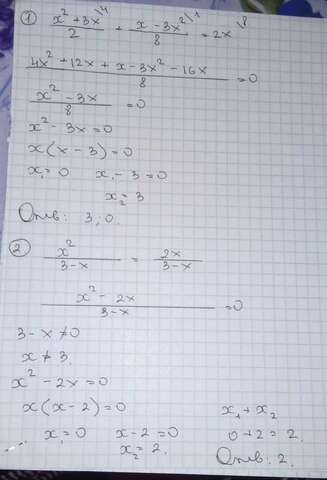 ① (x² + 3x)/2 \4 + (x - 3x²)/8 \1 = 2x \8
(4x² + 12x + x - 3x² - 16x)/8 = 0
(x² - 3x)/8 = 0
x² - 3x = 0
x(x - 3) = 0
x₁ = 0 x₁ - 3 = 0
x₂ = 3
Отв: 3; 0.
② x²/(3-x) = 2x/(3-x)
(x² - 2x)/(3-x) = 0
3 - x ≠ 0
x ≠ 3.
x² - 2x = 0
x(x - 2) = 0 x₁ + x₂
x₁ = 0 x - 2 = 0 0 + 2 = 2.
x₂ = 2. Отв: 2.